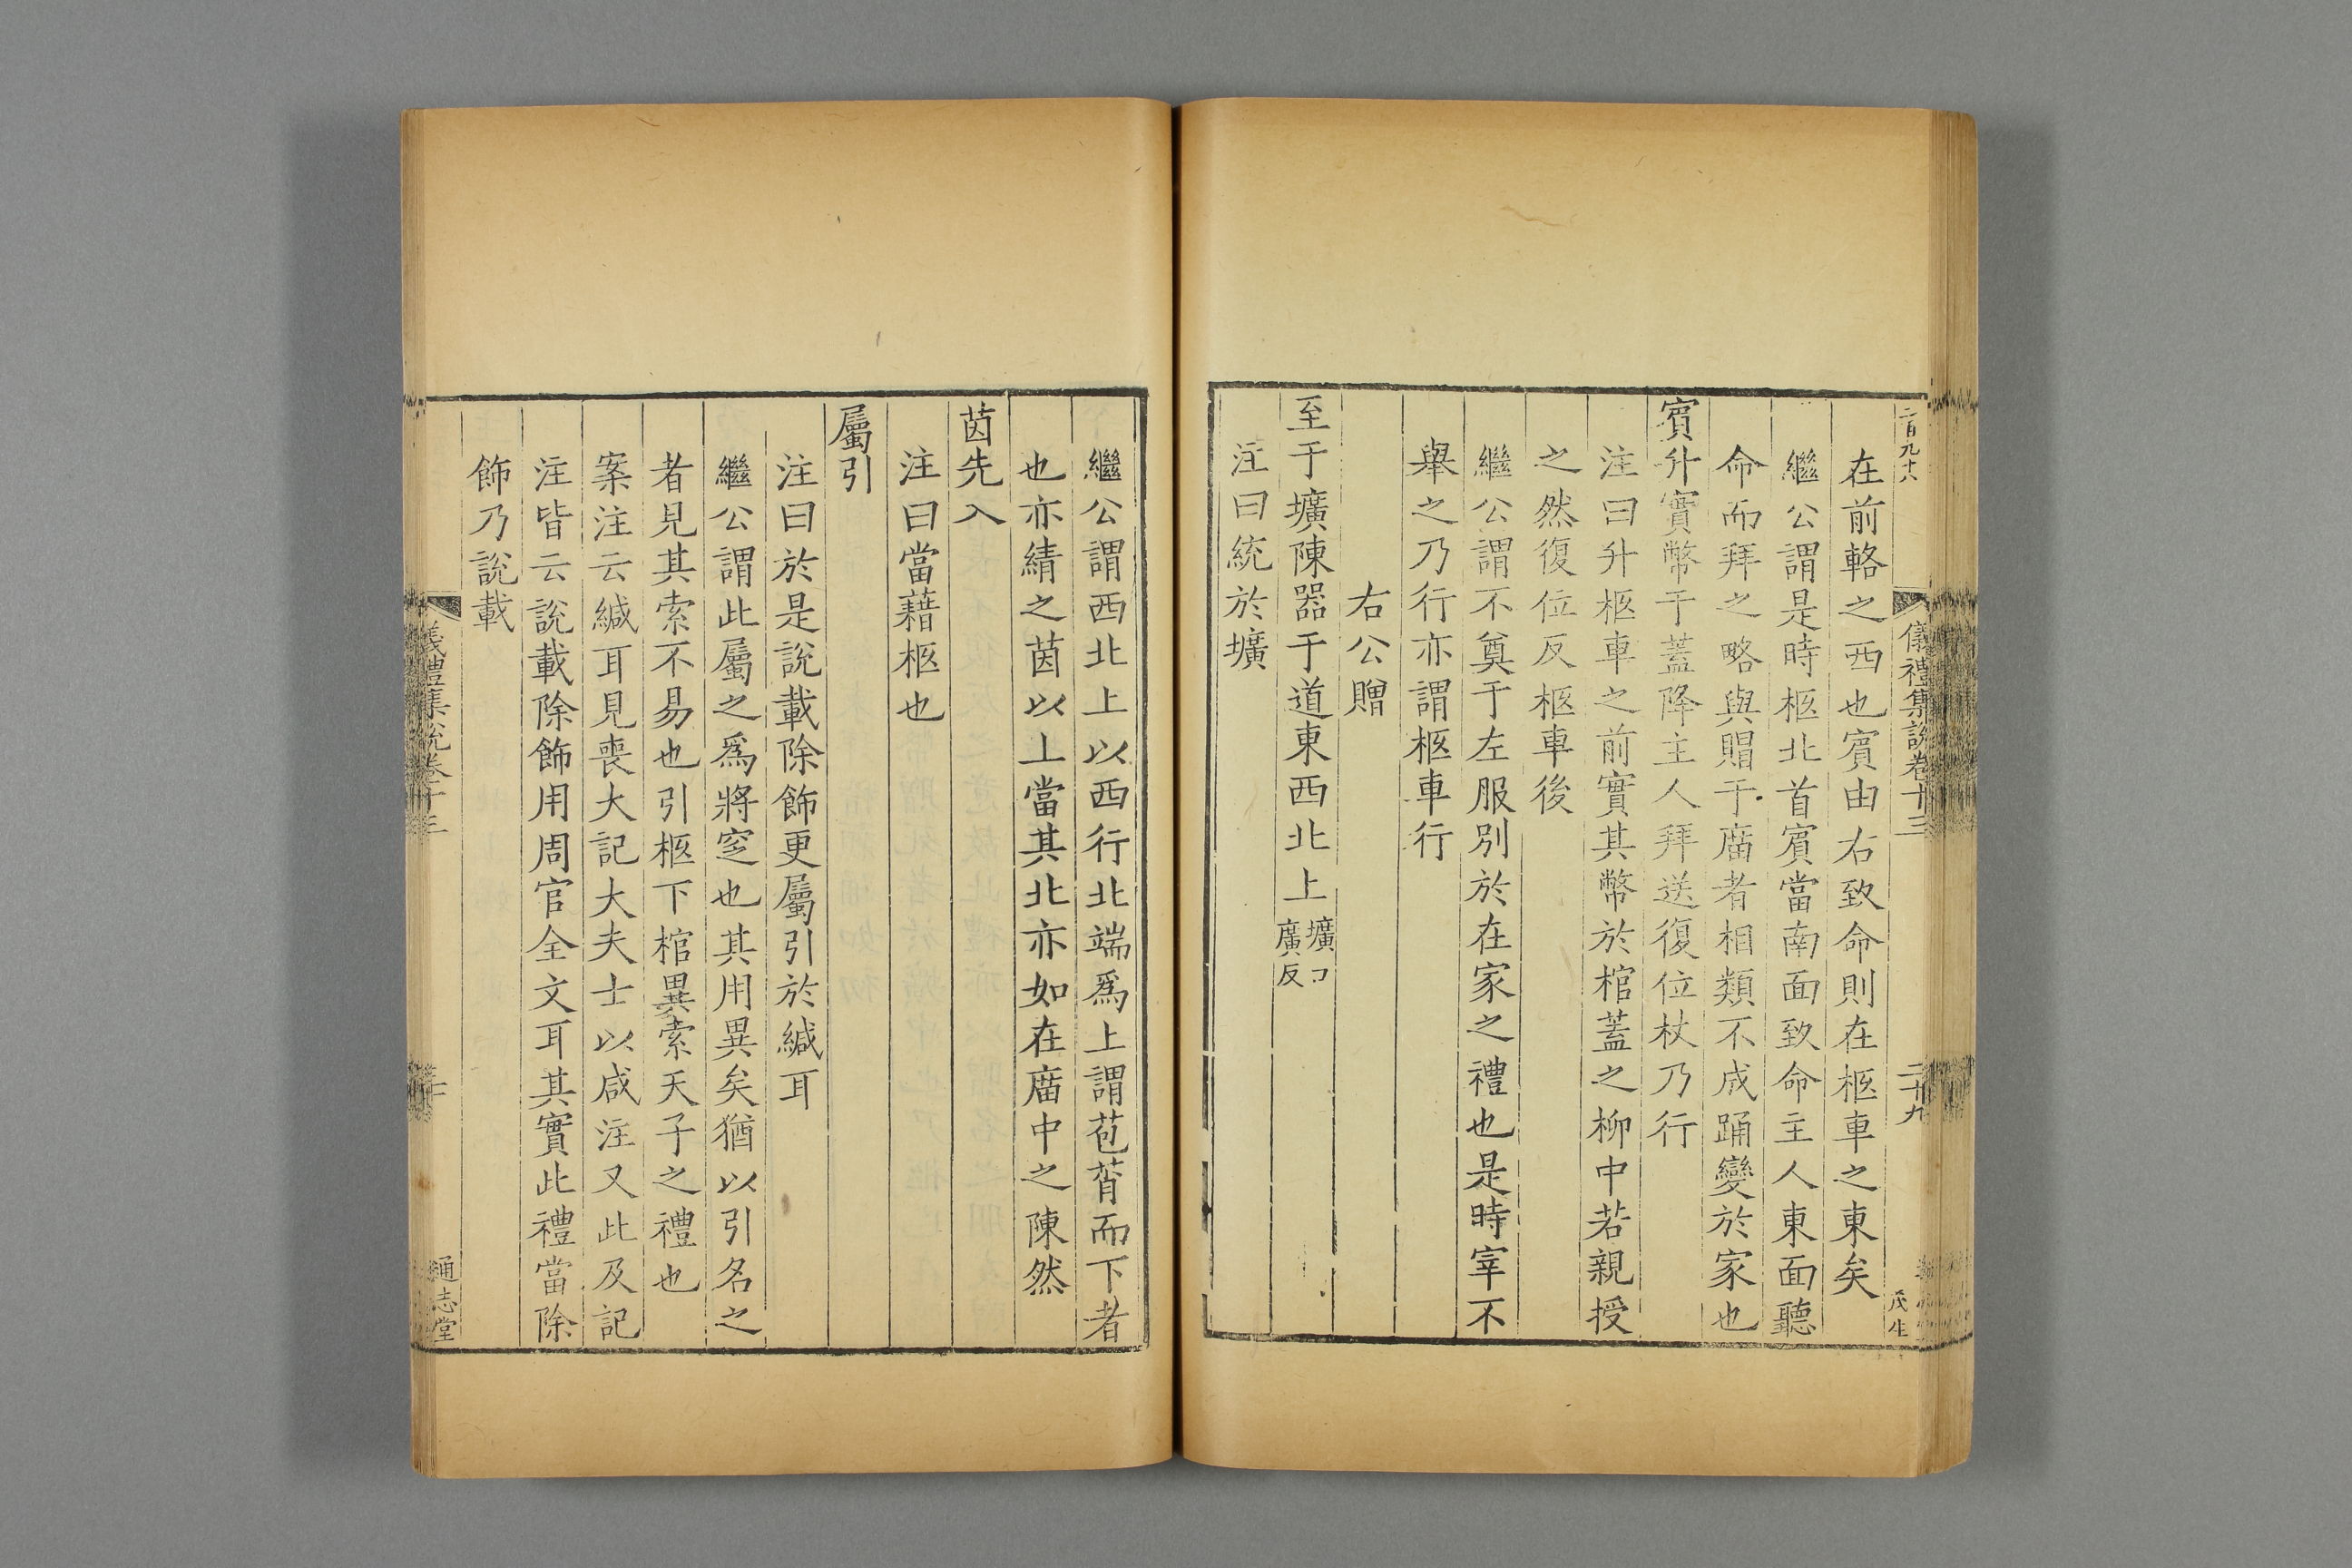 二百九十八
儀禮集說卷十三
二十九
茂生
在前輅之西也賔由右致命則在柩車之東矣
繼公謂是時柩北首賔當南面致命主人東面聽
命而拜之略與賵于庿者相類不成踊變於家也
賔升實幣于蓋降主人拜送復位杖乃行
注曰升柩車之前實其幣於棺蓋之柳中若親授
之然復位反柩車後
繼公謂不奠于左服别於在家之禮也是時宰不
舉之乃行亦謂柩車行
右公贈
至于壙陳器于道東西北上壙口廣反
注曰統於壙
繼公謂西北上以西行北端爲上謂苞筲而下者
也亦綪之茵以上當其北亦如在庿中之陳然
茵先入
注曰當藉柩也
屬引
注曰於是說載除飾更屬引於緘耳
繼公謂此屬之爲將窆也其用異矣猶以引名之
者見其索不易也引柩下棺異索天子之禮也
案注云緘耳見喪大記大夫士以咸注又此及記
注皆云說載除飾用周官全文耳其實此禮當除
飾乃說載
儀禮集說卷十三
三十
通志堂